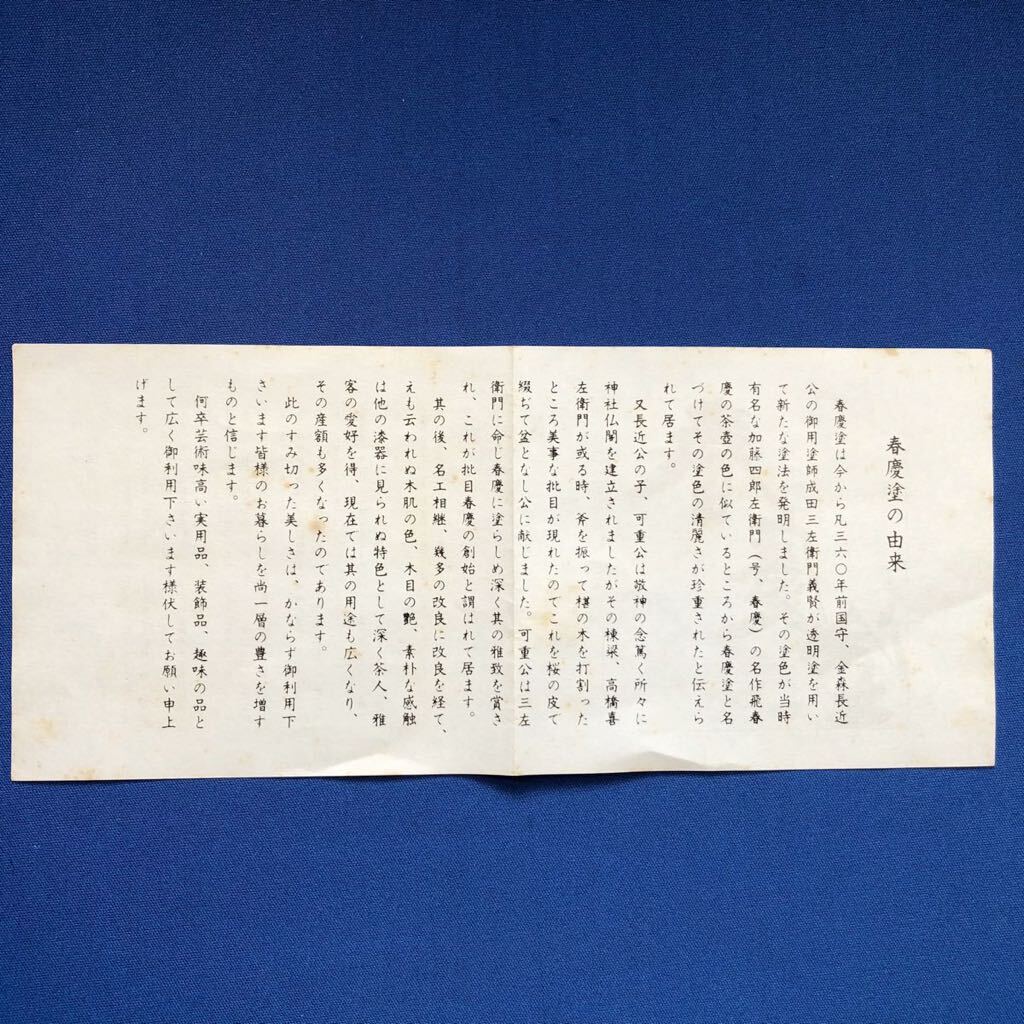 春慶塗の由来
春慶塗は今から凡三六〇年前国守、金森長近
公の御用塗師成田三左衛門義賢が透明塗を用い
て新たな塗法を発明しました。その塗色が当時
有名な加藤四郎左衛門（号、春慶）の名作飛春
慶の茶壺の色に似ているところから春慶塗と名
づけてその塗色の清麗さが珍重されたと伝えら
れて居ます。
又長近公の子、可重公は敬神の念篤く所々に
神社仏閣を建立されましたがその棟梁、高橋喜
左衛門が或る時、斧を振って椹の木を打割った
ところ美事な批目が現れたのでこれを桜の皮で
綴ぢて盆となし公に献じました。可重公は三左
衛門に命じ春慶に塗らしめ深く其の雅致を賞さ
れ、これが批目春慶の創始と謂はれて居ます。
其の後、名工相継、幾多の改良に改良を経て、
えも云われぬ木肌の色、木目の艶、素朴な感触
は他の漆器に見られぬ特色として深く茶人、雅
客の愛好を得、現在では其の用途も広くなり、
その産額も多くなったのであります。
此のすみ切った美しさは、かならず御利用下
さいます皆様のお暮らしを尚一層の豊さを増す
ものと信じます。
何卒芸術味高い実用品、装飾品、趣味の品と
して広く御利用下さいます様伏してお願い申上
げます。